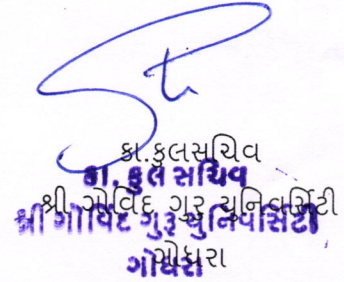 કા.કુલસચિવ
કા. કુલ સચિવ
શ્રી ગોવિંદ ગુરુ યુનિવર્સિટી
શ્રી ગોવિંદ ગુરૂ યુનિવર્સિટી
ગોધરા
ગોધરા